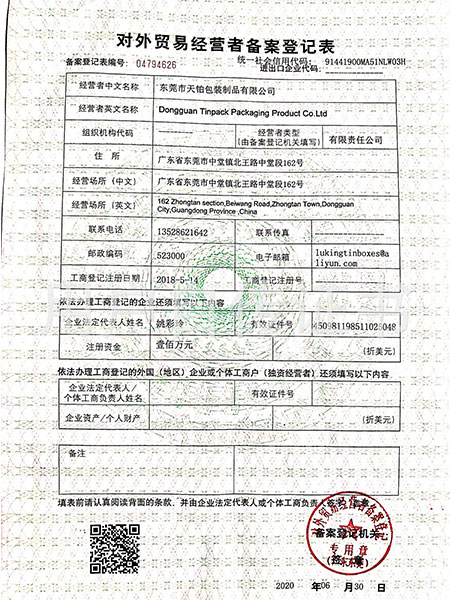 对外贸易经营者备案登记表
备案登记表编号: 04794626
统一社会信用代码: 91441900MA51NLW03H
进出口企业代码:
经营者中文名称 东莞市天铂包装制品有限公司
经营者英文名称 Dongguan Tinpack Packaging Product Co.Ltd
组织机构代码 经营者类型 (由备案登记机关填写) 有限责任公司
住 所 广东省东莞市中堂镇北王路中堂段162号
经营场所（中文） 广东省东莞市中堂镇北王路中堂段162号
经营场所（英文） 162 Zhongtan section,Beiwang Road,Zhongtan Town,Dongguan
City,Guangdong Province ,China
联系电话 13528621642 联系传真
邮政编码 523000 电子邮箱 lukingtinboxes@a
liyun.com
工商登记注册日期 2018-5-14 工商登记注册号
依法办理工商登记的企业还须填写以下内容
企业法定代表人姓名 姚彩玲 有效证件号 450981198511025048
注册资金 壹佰万元 (折美元)
依法办理工商登记的外国（地区）企业或个体工商户（独资经营者）还须填写以下内容
企业法定代表人/
个体工商负责人姓名 有效证件号
企业资产/个人财产 (折美元)
备注
填表前请认真阅读背面的条款，并由企业法定代表人或个体工商负责人签字、盖章
对外贸易经营者备案登记
备案登记机关
专用章
(签 章)
2020 年 06 月 30 日